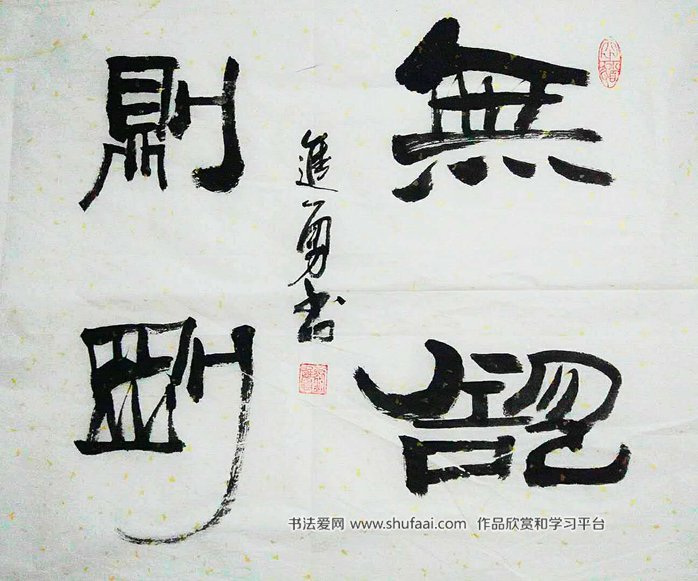 無欲
則剛
進勇书
书法爱网 www.shufaai.com 作品欣赏和学习平台